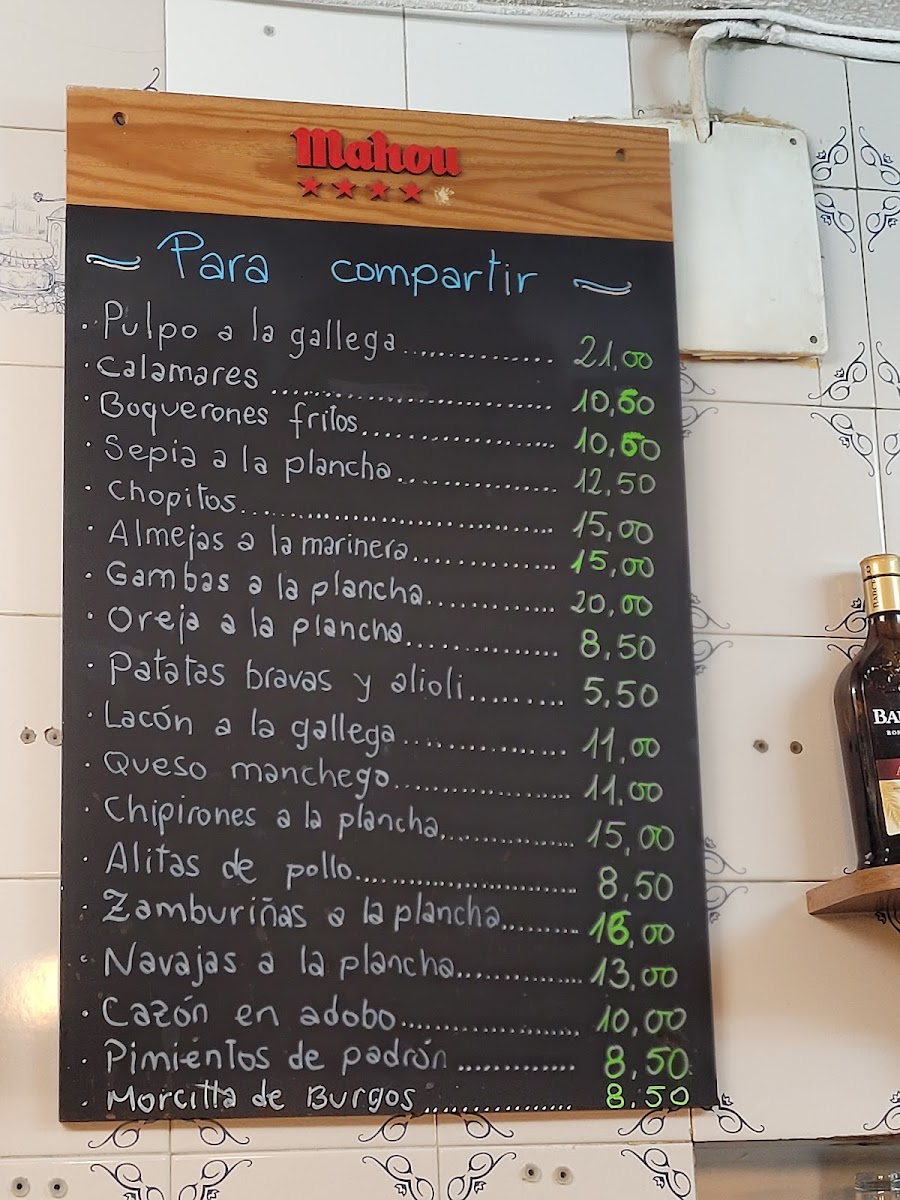 Mahou
Para compartir
· Pulpo a la gallega............... 21,00
· Calamares ............................ 10,50
· Boquerones fritos................... 10,50
· Sepia a la plancha............... 12,50
· Chopitos............................... 15,00
· Almejas a la marinera............ 15,00
· Gambas a la plancha............ 20,00
· Oreja a la plancha............... 8,50
· Patatas bravas y alioli....... 5,50
· Lacón a la gallega............... 11,00
· Queso manchego................. 11.00
· Chipirones a la plancha........... 15,00
· Alitas de pollo....................... 8,50
· Zamburiñas a la plancha........ 16,00
· Navajas a la plancha............ 13,00
· Cazón en adobo.................... 10,00
· Pimientos de padrón ............ 8,50
· Morcilla de Burgos............... 8.50